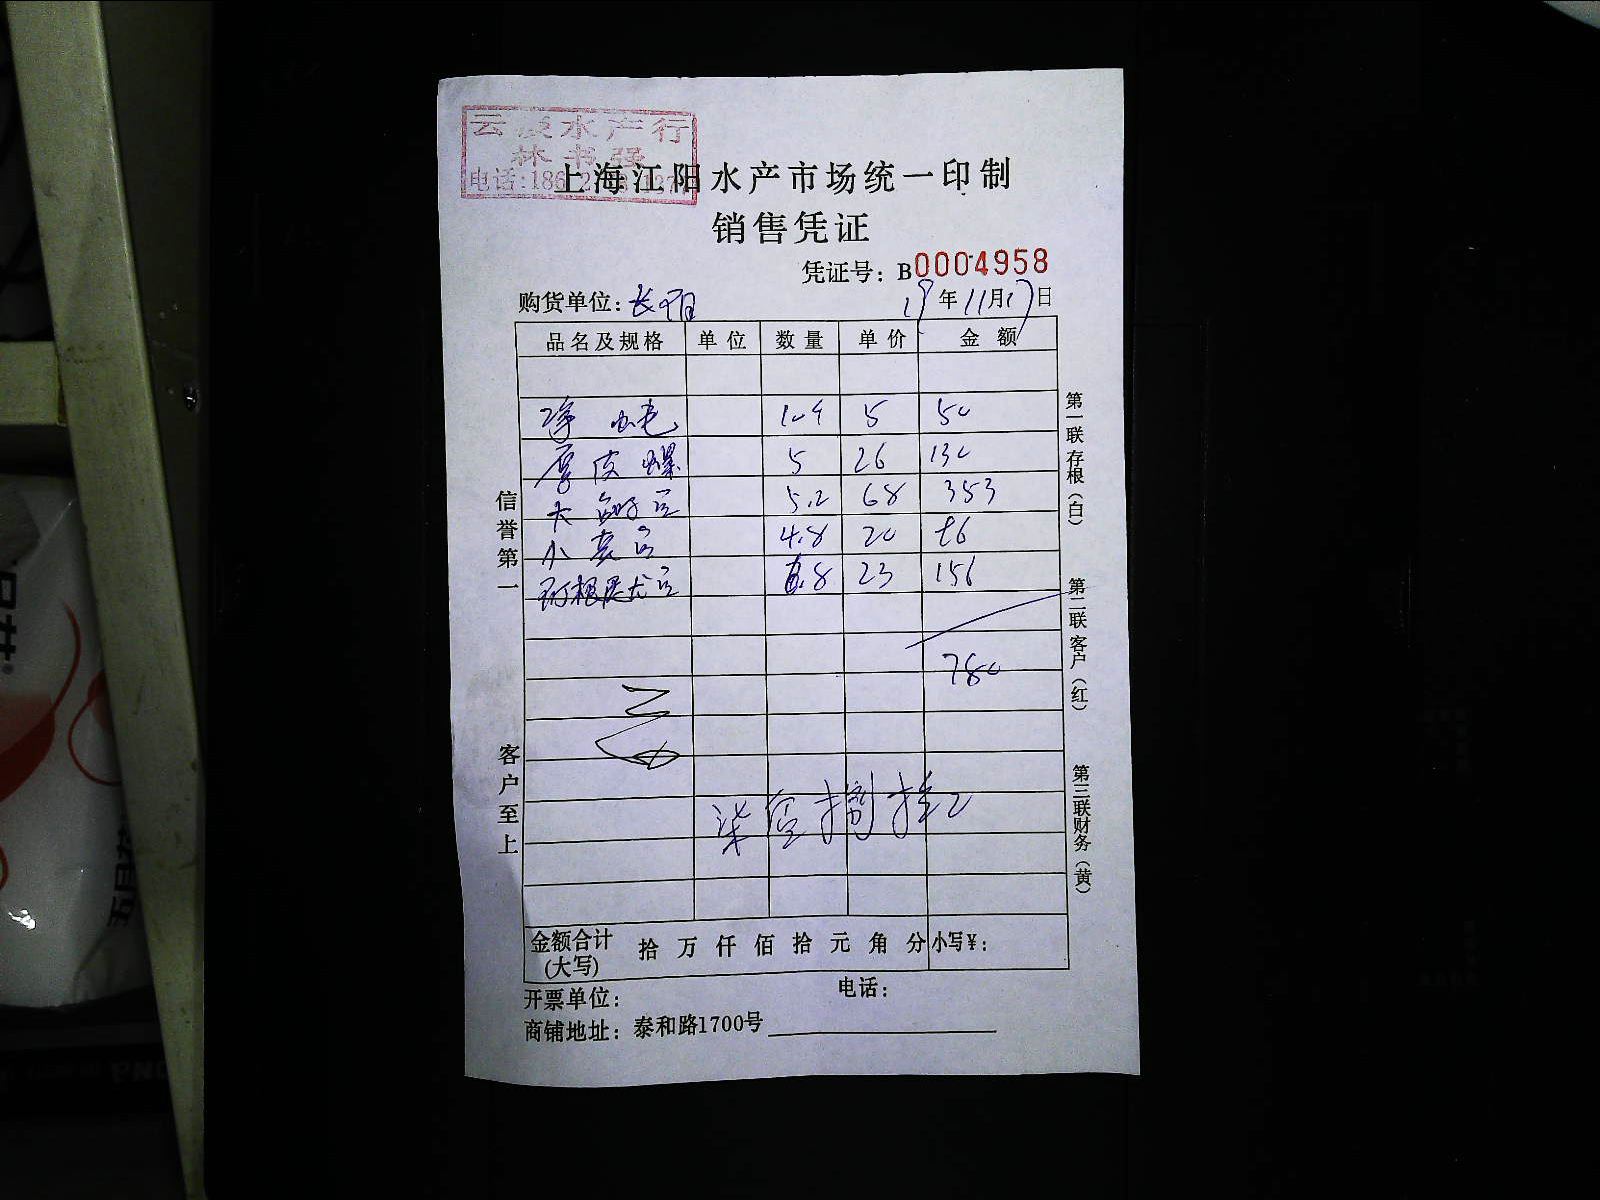 云 水产行
林书强
电话:186
上海江阳水产市场统一印制
销售凭证
凭证号: B0004958
购货单位: 长阳 19年11月17日
品名及规格 单位 数量 单价 金额
净 5 50
厚皮螺 5 26 130
大 5.2 68 353
小 4.8 20 96
.8 23 156
780
柒佰捌拾元
金额合计(大写) 拾 万 仟 佰 拾 元 角 分 小写¥:
开票单位: 电话:
商铺地址: 泰和路1700号
信誉第一
客户至上
第一联存根(白)
第二联客户(红)
第三联财务(黄)